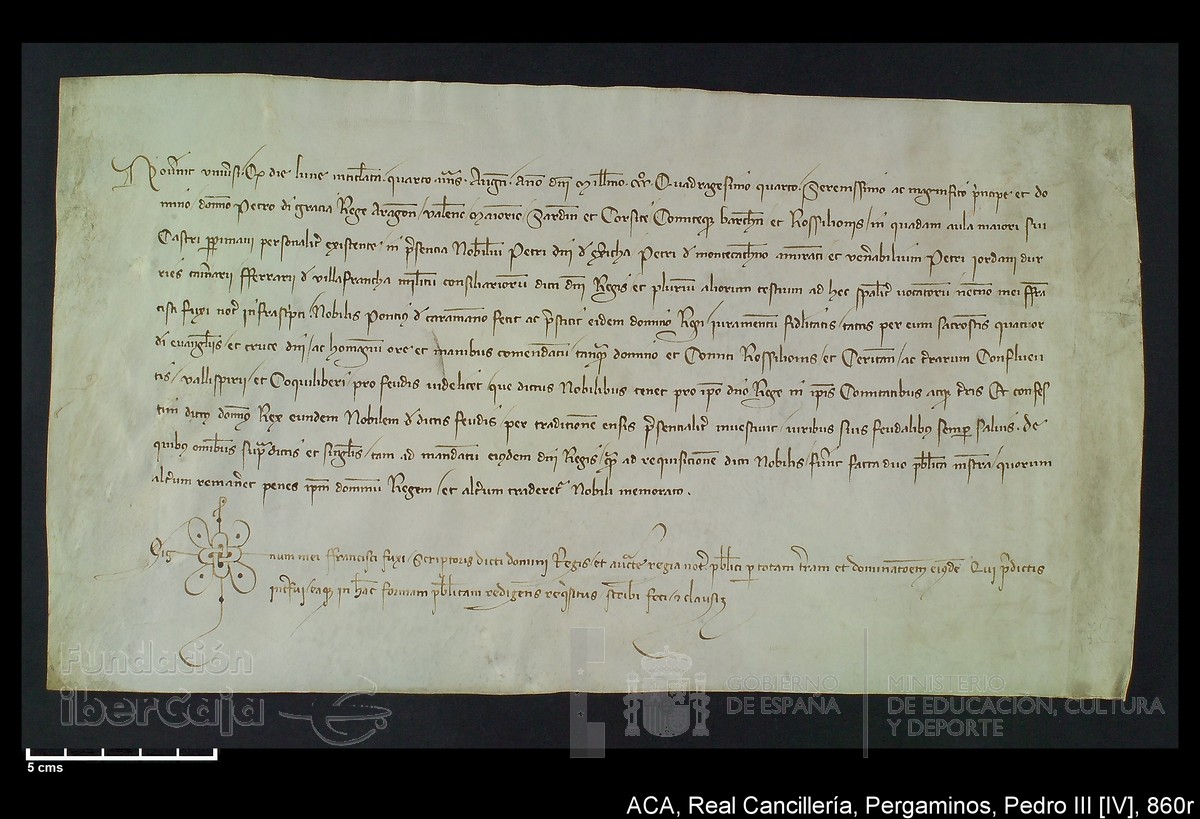 Noverint universi. Qd die lune intitulata quarto mens. August. Anno dni Millmo. CCCo. Quadragesimo quarto. Serenissimo ac magnifico principe et do
mino domno Petro di gracia Rege Aragon / Valencie Maiorice / Sardin et Corsice Comiteq. barchn et Rossilionis / in quadam aula maiori sui
Castri ppiniani personalit existente in psencia Nobilium Petri dni d Exericha Petri d montecatheno amirati et venabilium Petri iordani dur
ries camarii fferrarii d villafrancha militum consiliariorum dicti dni Regis et plurium aliorum testium ad hec spalit vocatorum necno mei ffra
cisci fuxi not infrascpti. Nobilis Poncius d caramanno fecit ac pstitit eidem domno Regi / iuramentum fidelitatis / tactis per eum sacrosctis quatuor
di evangliis et cruce dni / ac homagium ore et manibus comendatum / tanq domno et Comiti Rossilionis / et Ceritan / ac trarum Confluen
tis / vallispirii / et Coquiliberi / pro feudis videlicet que dictus Nobilibus tenet pro ipo dno Rege in ipis Comitatibus atq tris Et confes
tim dictus domnus Rex eundem Nobilem d dictis feudis / per tradicione ensis psencialit investivit / iuribus suis feudalibus semp salvis. de
quibus omnibus supdictis et singlis / tam ad mandatum eiusdem dni Regis / qm ad requisicione dicti Nobilis / funt facta duo publica instra / quorum
altum remanet penes ipm dominum Regem / et altum traderet Nobili memorato.
Sig num mei ffrancisci fuxi / Scriptoris dicti domini Regis / et aucte regia not publici p totam tram et dominacoem eiusde Qui pdictis
intfui / eaq in hac formam publicam redigens reqsitus scribi feci / et clausi
Fundación
iberCaja
GOBIERNO
DE ESPAÑA
MINISTERIO
DE EDUCACIÓN, CULTURA
Y DEPORTE
5 cms
ACA, Real Cancillería, Pergaminos, Pedro III [IV], 860r